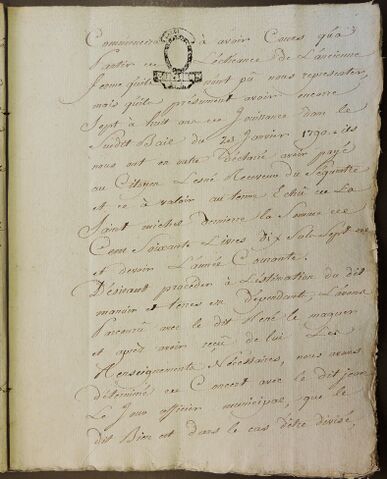 Commencera à avoir Cours qu'à
Partir de L'échéance de L'ancienne
ferme qu'ils n'ont pû nous representer,
mais qu'ils présument avoir encore
Sept à huit ans de Jouissance dans le
Susdit Baie du 23 Janvier 1790. ils
nous ont en outre Déclaré avoir payé
au Citoyen Lesné Receveur du Séquestre
et ce à valoir au terme Echu de La
Saint michel derniere la Somme de
Cent Soixante Livres dix Sols Sept
et devoir L'année Courante.
Désirant procéder à L'estimation du dit
manoir et terres en Dépendant, L'avons
Parcouru avec le dit René le maquer
et après avoir reçu de lui Les
Renseignements Nécessaires, nous avons
déterminé de Concert avec le dit jour
Le Jour officier municipal, que le
dit Bien est dans le cas d'être divisé,